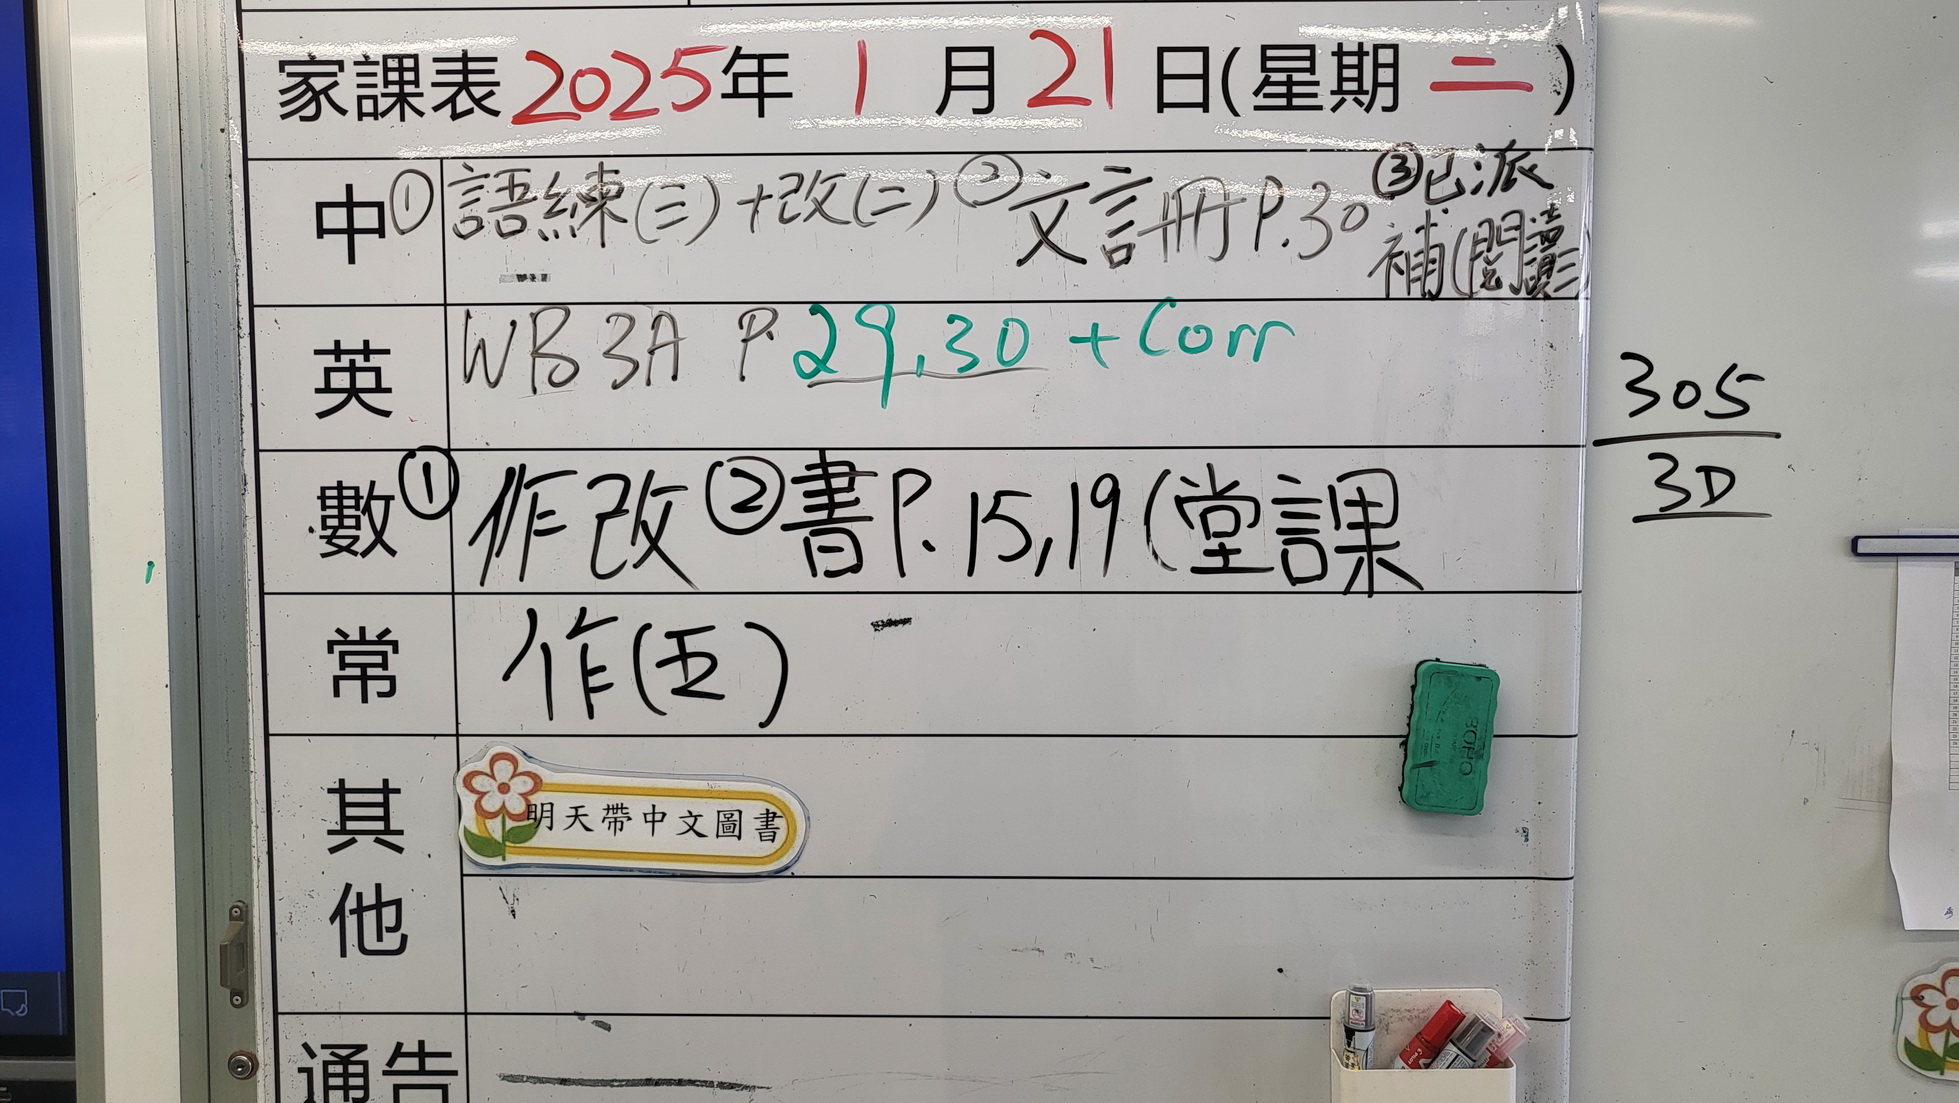 家課表2025年 1 月 21 日(星期 二 )
中 ① 語練(三)+改(二) ② 文言冊 P.30 ③已派
補(閱讀)
英 WB 3A P. 29,30 + Corr
數 ① 作改 ② 書P.15,19(堂課
常 作(五)
其他 明天帶中文圖書
通告
305
3D
BOHO